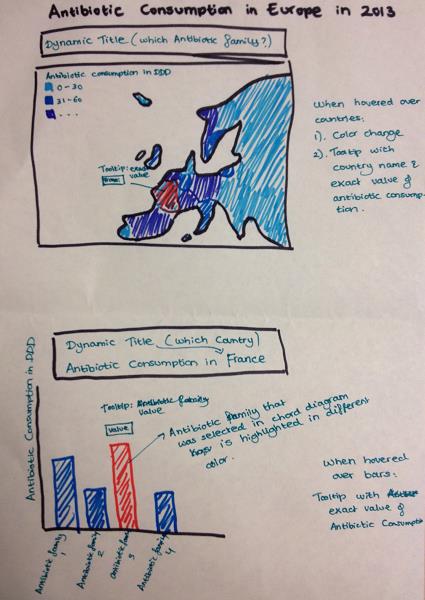 Antibiotic Consumption in Europe in 2013
Dynamic Title (which Antibiotic family?)
Antibiotic consumption in DDD
0-30
31-60
...
Tooltip: exact
value
When hovered over
countries:
1). Color change
2). Tooltip with
country name &
exact value of
antibiotic consump-
tion.
Dynamic Title (which Country)
Antibiotic Consumption in France
Antibiotic Consumption in DDD
Tooltip: Antibiotic family
value
value
Antibiotic family that
was selected in chord diagram
is highlighted in different
color.
When hovered
over bars:
Tooltip with
exact value of
Antibiotic Consumption
Antibiotic family
1
Antibiotic family
2
antibiotic family
3
Antibiotic family
4